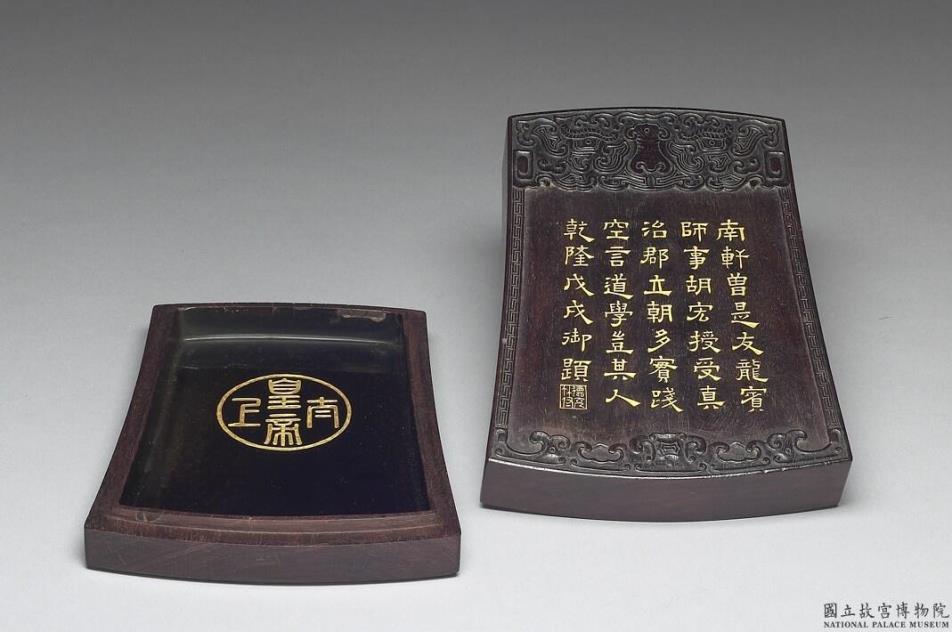 南軒曾是友龍賓
師事胡宏授受真
治郡立朝多實踐
空言道學豈其人
乾隆戊戌御題
太上
皇帝
國立故宮博物院
NATIONAL PALACE MUSEUM